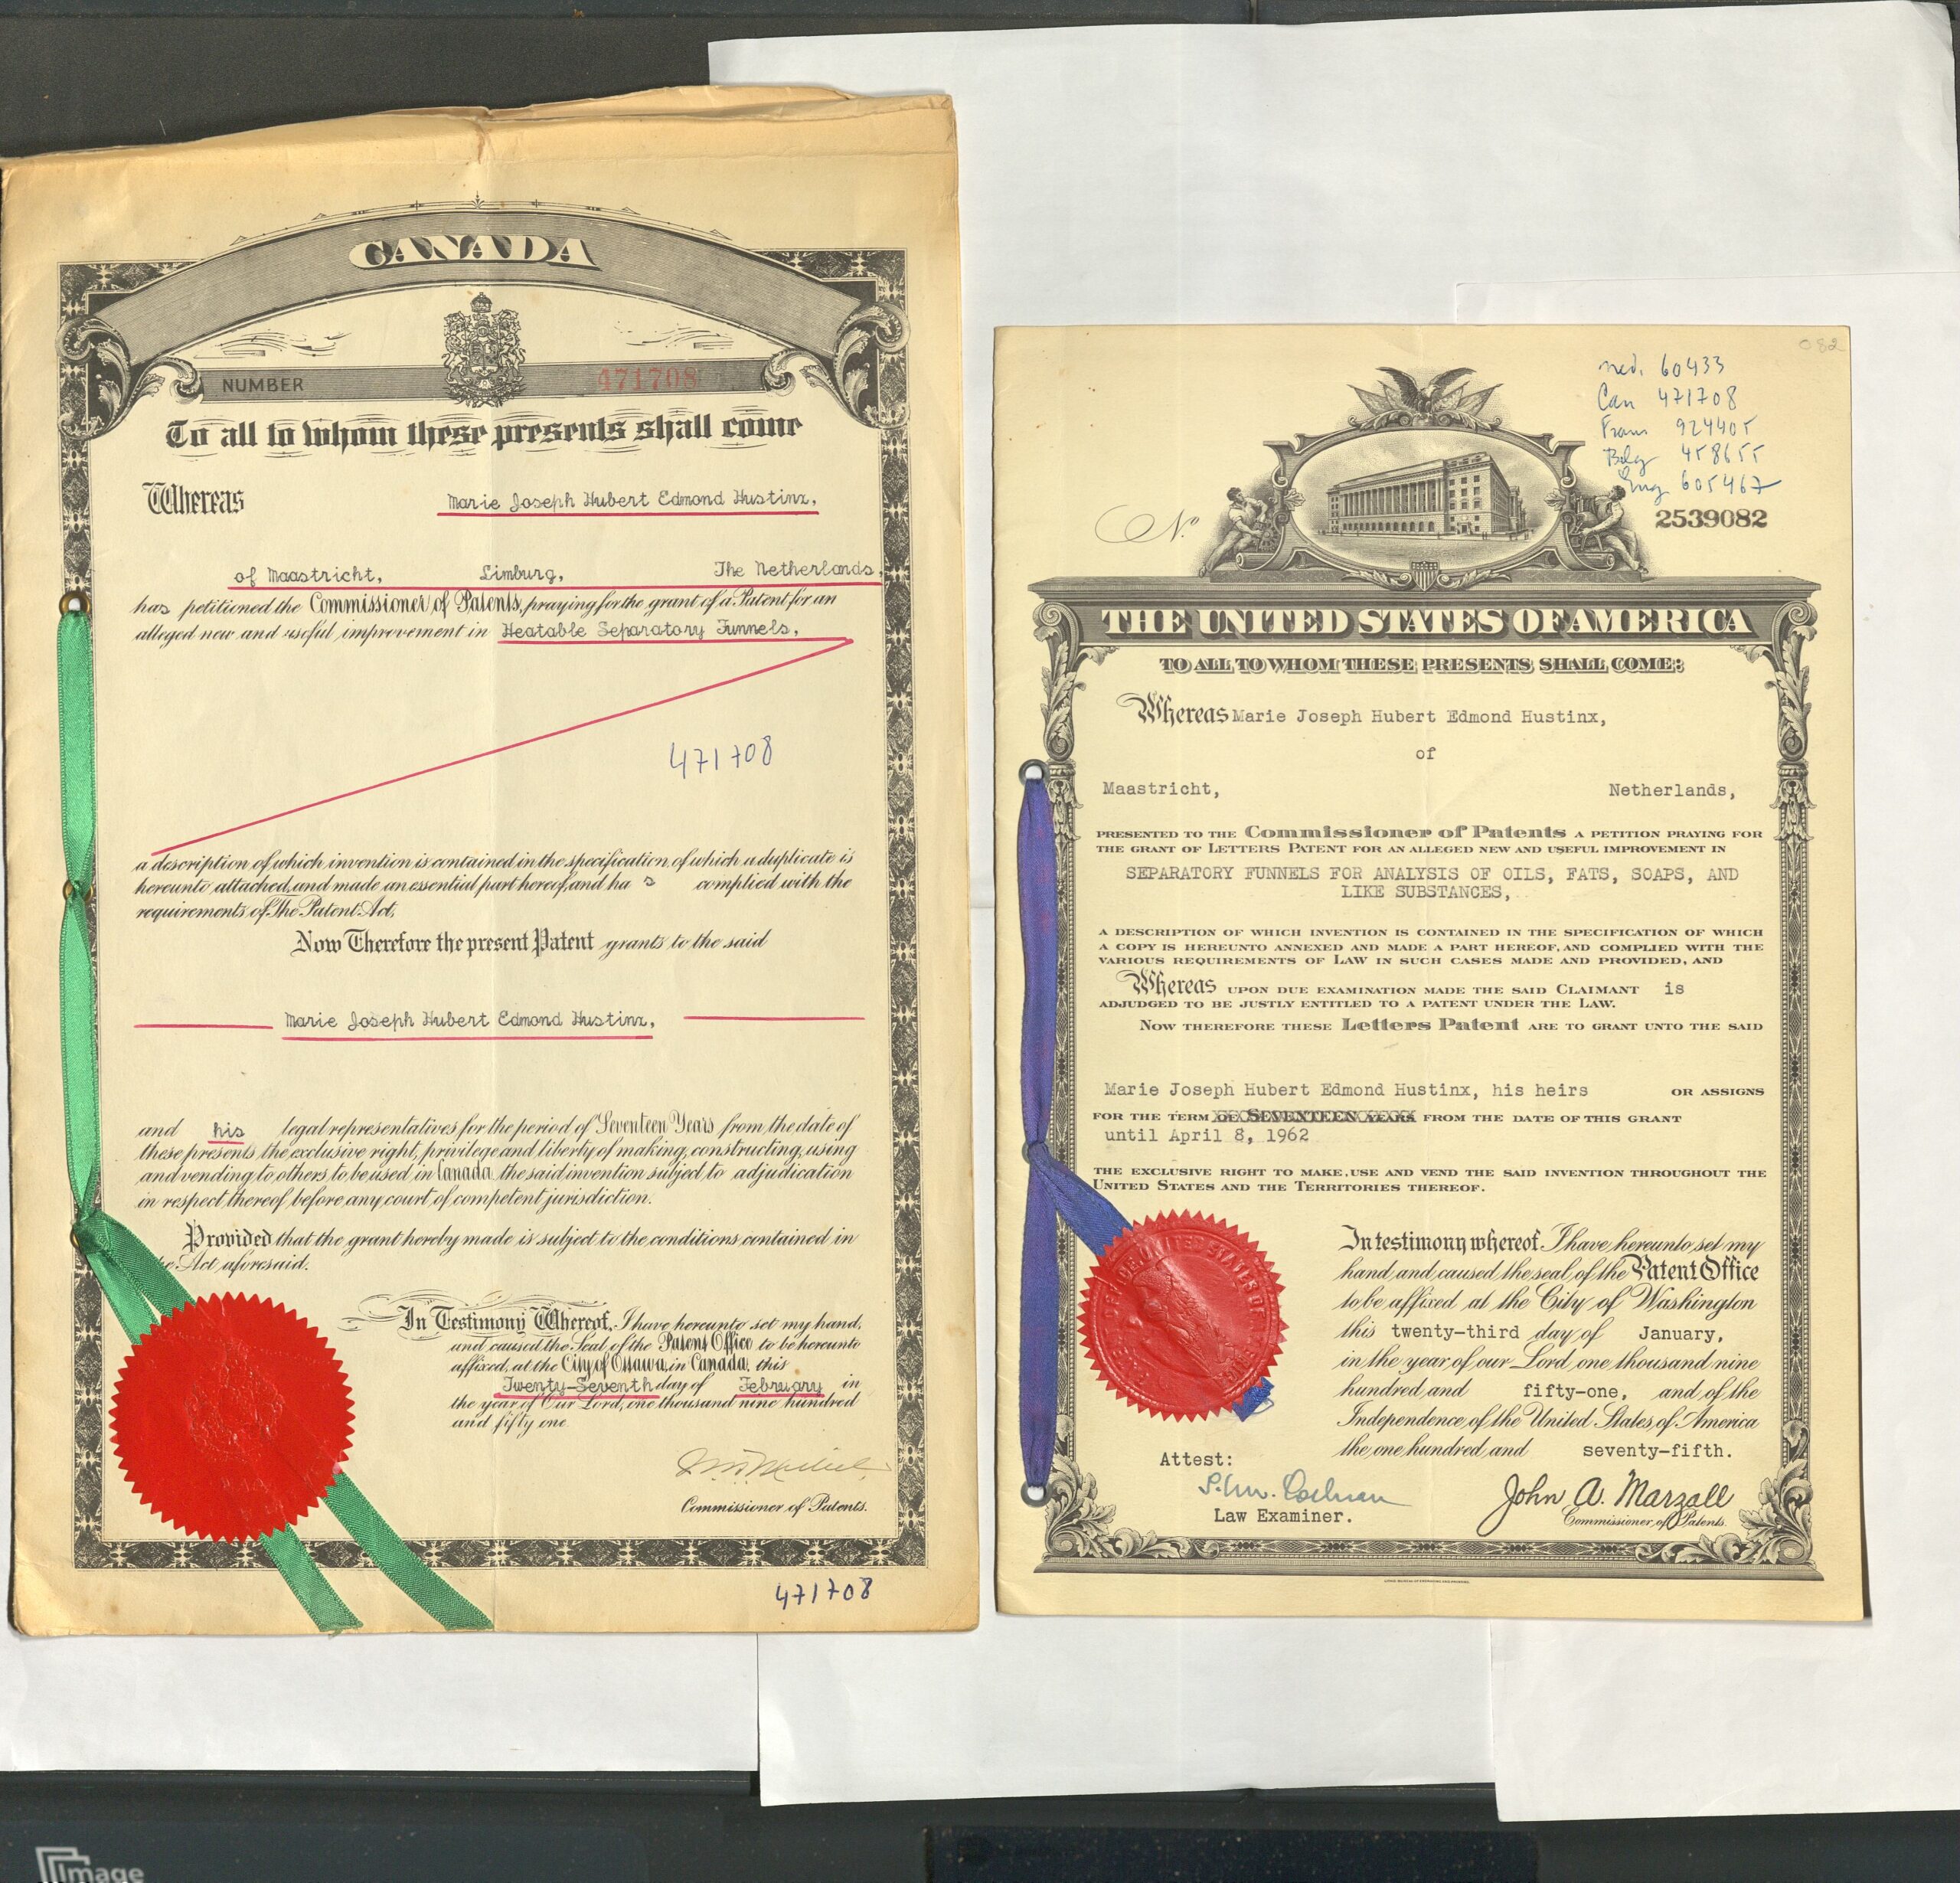 CANADA
NUMBER 471708
To all to whom these presents shall come
Whereas Marie Joseph Hubert Edmond Hustinx,
of Maastricht, Limburg, The Netherlands,
has petitioned the Commissioner of Patents, praying for the grant of a Patent for an
alleged new and useful improvement in Heatable Separatory Funnels,
471708
a description of which invention is contained in the specification of which a duplicate is
hereunto attached and made an essential part hereof, and ha s complied with the
requirements of The Patent Act,
Now Therefore the present Patent grants to the said
Marie Joseph Hubert Edmond Hustinx,
and his legal representatives for the period of Seventeen Years from the date of
these presents the exclusive right, privilege and liberty of making, constructing, using
and vending to others to be used in Canada the said invention subject to adjudication
in respect thereof before any court of competent jurisdiction.
Provided that the grant hereby made is subject to the conditions contained in
Act aforesaid.
In Testimony Whereof, I have hereunto set my hand,
and caused the Seal of the Patent Office to be hereunto
affixed, at the City of Ottawa, in Canada, this
Twenty-Seventh day of February in
the year of Our Lord, one thousand nine hundred
and fifty one
Commissioner of Patents.
471708
082
ned. 60433
Can 471708
Fran 924405
Belg 458655
Eng 605467
No. 2539082
THE UNITED STATES OF AMERICA
TO ALL TO WHOM THESE PRESENTS SHALL COME:
Whereas Marie Joseph Hubert Edmond Hustinx,
of
Maastricht, Netherlands,
PRESENTED TO THE Commissioner of Patents A PETITION PRAYING FOR
THE GRANT OF LETTERS PATENT FOR AN ALLEGED NEW AND USEFUL IMPROVEMENT IN
SEPARATORY FUNNELS FOR ANALYSIS OF OILS, FATS, SOAPS, AND
LIKE SUBSTANCES,
A DESCRIPTION OF WHICH INVENTION IS CONTAINED IN THE SPECIFICATION OF WHICH
A COPY IS HEREUNTO ANNEXED AND MADE A PART HEREOF, AND COMPLIED WITH THE
VARIOUS REQUIREMENTS OF LAW IN SUCH CASES MADE AND PROVIDED, AND
Whereas UPON DUE EXAMINATION MADE THE SAID CLAIMANT is
ADJUDGED TO BE JUSTLY ENTITLED TO A PATENT UNDER THE LAW.
NOW THEREFORE THESE Letters Patent ARE TO GRANT UNTO THE SAID
Marie Joseph Hubert Edmond Hustinx, his heirs OR ASSIGNS
FOR THE TERM OF SEVENTEEN YEARS FROM THE DATE OF THIS GRANT
until April 8, 1962
THE EXCLUSIVE RIGHT TO MAKE, USE AND VEND THE SAID INVENTION THROUGHOUT THE
UNITED STATES AND THE TERRITORIES THEREOF.
In testimony whereof, I have hereunto set my
hand and caused the seal of the Patent Office
to be affixed at the City of Washington
this twenty-third day of January,
in the year of our Lord one thousand nine
hundred and fifty-one, and of the
Independence of the United States of America
the one hundred and seventy-fifth.
Attest:
Law Examiner.
John A. Marzall
Commissioner of Patents.
Image